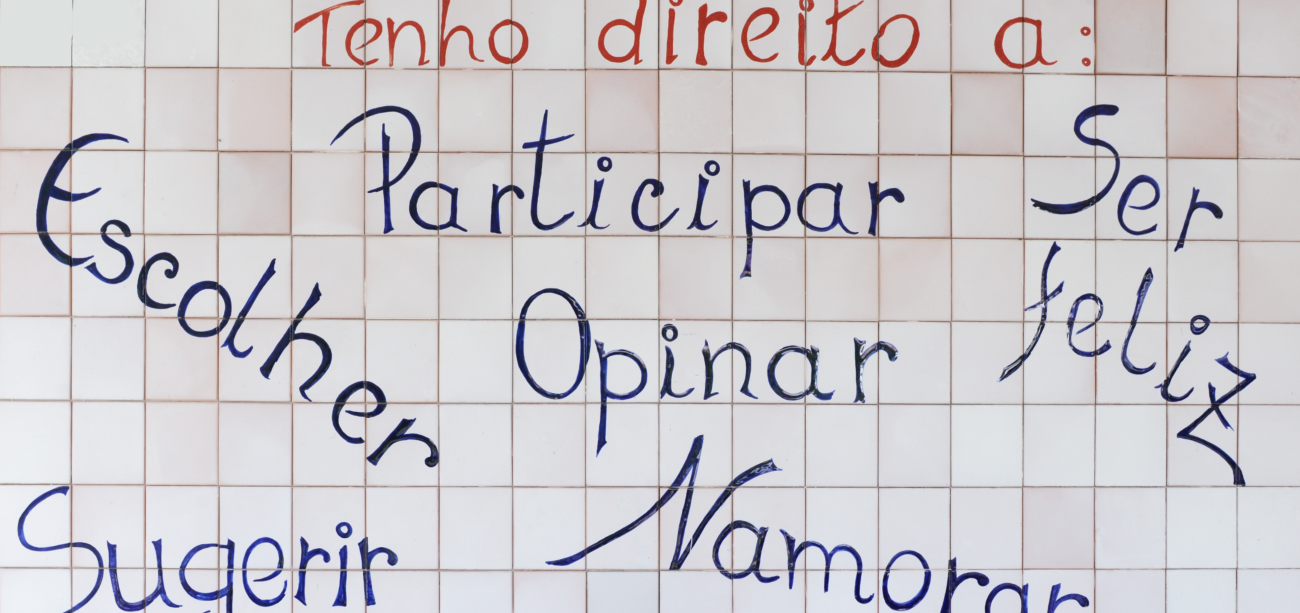 Tenho direito a:
Escolher
Participar
Ser
feliz
Opinar
Sugerir
Namorar